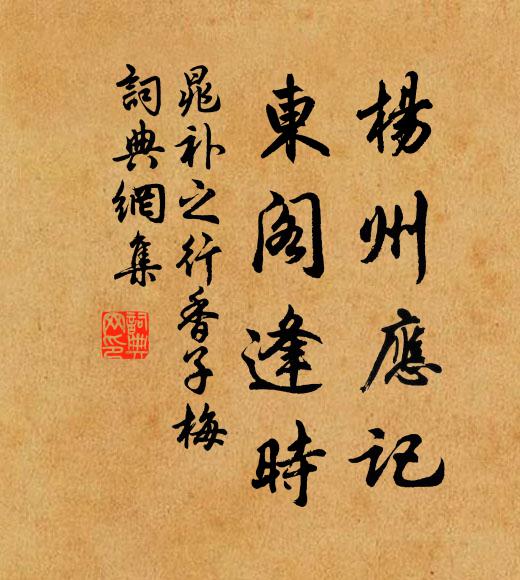 楊州應記
東閣逢時
晁补之行香子梅
詞典網集
詞典
网印